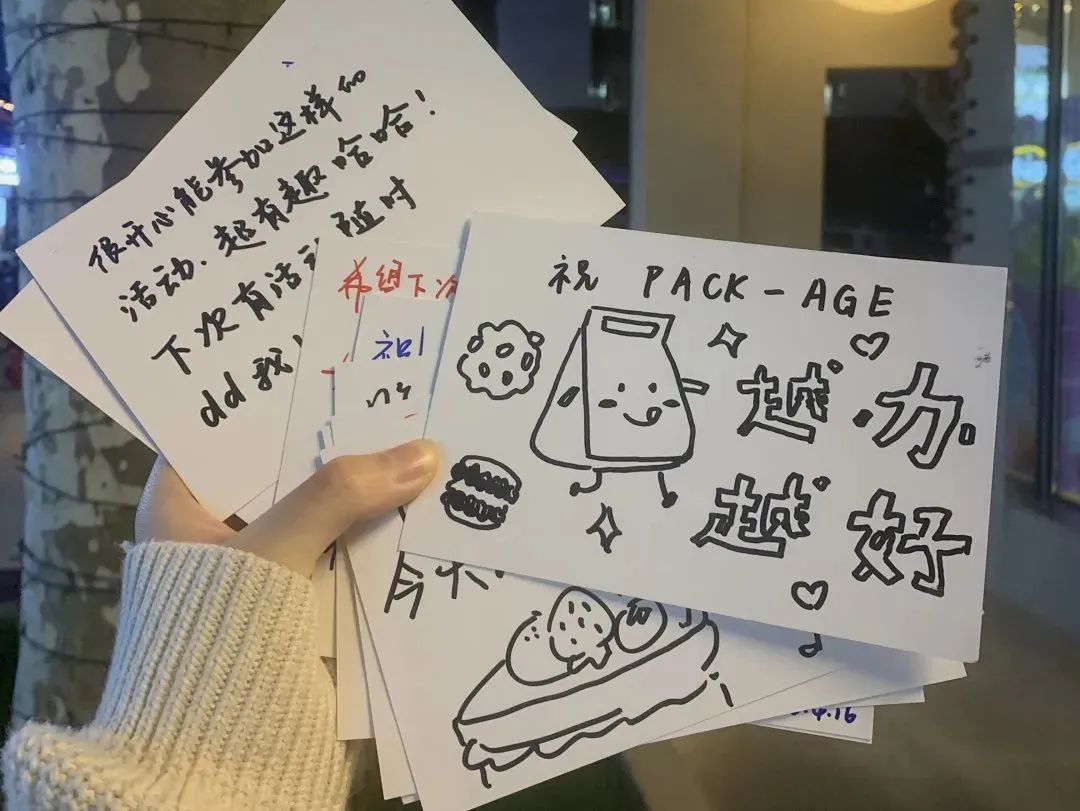 很开心能参加这样的
活动、超有趣哈哈哈！
下次有活动随时
dd我！
希组下次
祝
祝 PACK-AGE
越办
越好
今
.4.16